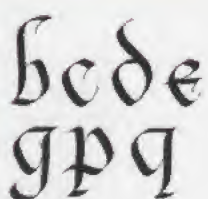 bcde
gpq